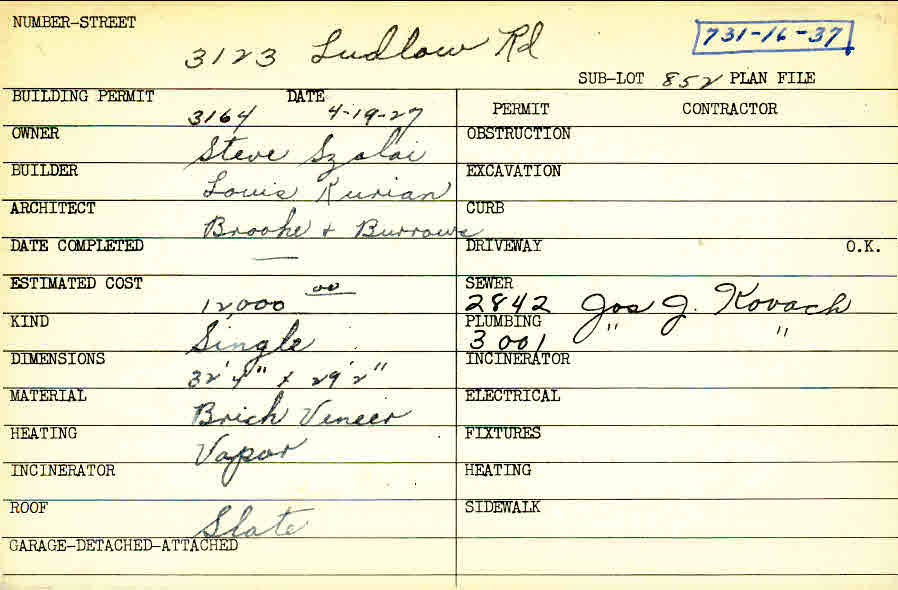 NUMBER-STREET
3123 Ludlow Rd
731-16-37
SUB-LOT 852 PLAN FILE
BUILDING PERMIT DATE
3164 4-19-27
OWNER
Steve Szalai
BUILDER
Louis Kurian
ARCHITECT
Brooke + Burrows
DATE COMPLETED
—
ESTIMATED COST
12,000 00
KIND
Single
DIMENSIONS
32'4" x 29'2"
MATERIAL
Brick Veneer
HEATING
Vapor
INCINERATOR
ROOF
Slate
GARAGE-DETACHED-ATTACHED
PERMIT CONTRACTOR
OBSTRUCTION
EXCAVATION
CURB
DRIVEWAY O.K.
SEWER
2842 Jos J. Kovach
PLUMBING
3001 " "
INCINERATOR
ELECTRICAL
FIXTURES
HEATING
SIDEWALK